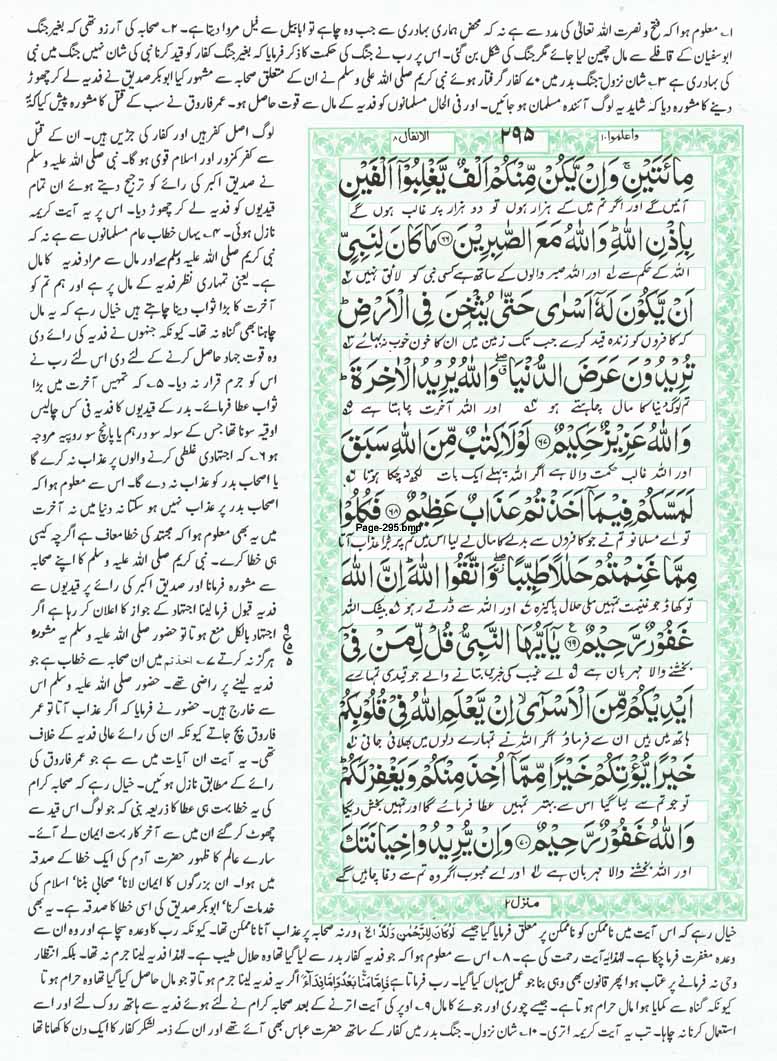 ۱۔ معلوم ہوا کہ فتح و نصرت اللہ تعالیٰ کی مدد سے ہے نہ کہ محض ہماری بہادری سے جب وہ چاہے تو ابابیل سے فیل مروا دیتا ہے۔ ۲۔ صحابہ کی آرزو تھی کہ بغیر جنگ
ابوسفیان کے قافلے سے مال چھین لیا جائے مگر جنگ کی شکل بن گئی۔ اس پر رب نے جنگ کی حکمت کا ذکر فرمایا کہ بغیر جنگ کفار کو قید کرنا نبی کی شان نہیں جنگ میں نبی
کی بہادری ہے ۳۔ شان نزول۔ جنگ بدر میں ۷۰ کفار گرفتار ہوئے نبی کریم صلی اللہ علیہ وسلم نے ان کے متعلق صحابہ سے مشورہ کیا ابوبکر صدیق نے فدیہ لے کر چھوڑ
دینے کا مشورہ دیا کہ شاید یہ لوگ آئندہ مسلمان ہو جائیں۔ اور فی الحال مسلمانوں کو فدیہ کے مال سے قوت حاصل ہو۔ عمر فاروق نے سب کے قتل کا مشورہ پیش کیا کہ یہ
لوگ اصل کفر ہیں اور کفار کی جڑیں ہیں۔ ان کے قتل
سے کفر کمزور اور اسلام قوی ہو گا۔ نبی صلی اللہ علیہ وسلم
نے صدیق اکبر کی رائے کو ترجیح دیتے ہوئے ان تمام
قیدیوں کو فدیہ لے کر چھوڑ دیا۔ اس پر یہ آیت کریمہ
نازل ہوئی۔ ۴۔ یہاں خطاب عام مسلمانوں سے ہے نہ کہ
نبی کریم صلی اللہ علیہ وسلم سے اور مال سے مراد فدیہ کا مال
ہے۔ یعنی تمہاری نظر فدیہ کے مال پر ہے اور ہم تم کو
آخرت کا بڑا ثواب دینا چاہتے ہیں خیال رہے کہ یہ مال
چاہنا بھی گناہ نہ تھا۔ کیونکہ جنہوں نے فدیہ کی رائے دی
وہ قوت جہاد حاصل کرنے کے لئے دی اس لئے رب نے
اس کو جرم قرار نہ دیا۔ ۵۔ کہ تمہیں آخرت میں بڑا
ثواب عطا فرمائے۔ بدر کے قیدیوں کا فدیہ فی کس چالیس
اوقیہ سونا تھا جس کے سولہ سو درہم یا پانچ سو روپیہ مروجہ
ہو ۶۔ کہ اجتہادی غلطی کرنے والوں پر عذاب نہ کرے گا
یا اصحاب بدر کو عذاب نہ دے گا۔ اس سے معلوم ہوا کہ
اصحاب بدر پر عذاب نہیں ہو سکتا نہ دنیا میں نہ آخرت
میں یہ بھی معلوم ہوا کہ مجتہد کی خطا معاف ہے اگرچہ کیسی
ہی خطا کرے۔ نبی کریم صلی اللہ علیہ وسلم کا اپنے صحابہ
سے مشورہ فرمانا اور صدیق اکبر کی رائے پر قیدیوں سے
فدیہ قبول فرما لینا اجتہاد کے جواز کا اعلان کر رہا ہے اگر
اجتہاد بالکل منع ہوتا تو حضور صلی اللہ علیہ وسلم یہ مشورہ
ہرگز نہ کرتے ۷۔ اخذتم میں ان صحابہ سے خطاب ہے جو
فدیہ لینے پر راضی تھے۔ حضور صلی اللہ علیہ وسلم اس
سے خارج ہیں۔ حضور نے فرمایا کہ اگر عذاب آتا تو عمر
فاروق بچ جاتے کیونکہ ان کی رائے عالی فدیہ کے خلاف
تھی۔ یہ آیت ان آیات میں سے ہے جو عمر فاروق کی
رائے کے مطابق نازل ہوئیں۔ خیال رہے کہ صحابہ کرام
کی یہ خطا بہت ہی عطا کا ذریعہ بنی کہ جو لوگ اس قید سے
چھوٹ کر گئے ان میں سے آخر کار بہت ایمان لے آئے۔
سارے عالم کا ظہور حضرت آدم کی ایک خطا کے صدقہ
میں ہوا۔ ان بزرگوں کا ایمان لانا' صحابی بننا' اسلام کی
خدمات کرنا' ابوبکر صدیق کی اسی خطا کا صدقہ ہے۔ یہ بھی
واعلموا ۱۰
۲۹۵
الانفال ۸
مِائَتَيْنِ ۚ وَاِنْ يَّكُنْ مِّنْكُمْ اَلْفٌ يَّغْلِبُوْٓا اَلْفَيْنِ
آئیں گے اور اگر تم میں کے ہزار ہوں تو دو ہزار پر غالب ہوں گے
بِاِذْنِ اللّٰهِ ۭ وَاللّٰهُ مَعَ الصّٰبِرِيْنَ ﴿۶۶﴾ مَا كَانَ لِنَبِيٍّ
اللہ کے حکم سے ۱ اور اللہ صبر والوں کے ساتھ ہے کسی نبی کو لائق نہیں ۲
اَنْ يَّكُوْنَ لَهٗٓ اَسْرٰى حَتّٰى يُثْخِنَ فِى الْاَرْضِ ۭ
کہ کافروں کو زندہ قید کرے جب تک زمین میں ان کا خون خوب نہ بہائے ۳
تُرِيْدُوْنَ عَرَضَ الدُّنْيَا ۖ وَاللّٰهُ يُرِيْدُ الْاٰخِرَةَ ۭ
تم لوگ دنیا کا مال چاہتے ہو ۴ اور اللہ آخرت چاہتا ہے ۵
وَاللّٰهُ عَزِيْزٌ حَكِيْمٌ ﴿۶۷﴾ لَوْلَا كِتٰبٌ مِّنَ اللّٰهِ سَبَقَ
اور اللہ غالب حکمت والا ہے اگر اللہ پہلے ایک بات لکھ نہ چکا ہوتا ۶
لَمَسَّكُمْ فِيْمَآ اَخَذْتُمْ عَذَابٌ عَظِيْمٌ ﴿۶۸﴾ فَكُلُوْا
Page-295.bmp
تو اے مسلمانو تم نے جو کافروں سے بدلے کا مال لے لیا اس میں تم پر بڑا عذاب آتا
مِمَّا غَنِمْتُمْ حَلٰلًا طَيِّبًا ۖ وَّاتَّقُوا اللّٰهَ ۭ اِنَّ اللّٰهَ
تو کھاؤ جو غنیمت تمہیں ملی حلال پاکیزہ ۸ اور اللہ سے ڈرتے رہو بیشک اللہ
غَفُوْرٌ رَّحِيْمٌ ﴿۶۹﴾ يٰٓاَيُّهَا النَّبِىُّ قُلْ لِّمَنْ فِىْٓ
بخشنے والا مہربان ہے ۹ اے غیب کی خبریں بتانے والے جو قیدی تمہارے
اَيْدِيْكُمْ مِّنَ الْاَسْرٰٓى ۙ اِنْ يَّعْلَمِ اللّٰهُ فِىْ قُلُوْبِكُمْ
ہاتھ میں ہیں ان سے فرماؤ اگر اللہ نے تمہارے دلوں میں بھلائی جانی ۱۰
خَيْرًا يُّؤْتِكُمْ خَيْرًا مِّمَّآ اُخِذَ مِنْكُمْ وَيَغْفِرْ لَكُمْ ۭ
تو جو تم سے لیا گیا اس سے بہتر تمہیں عطا فرمائے گا اور تمہیں بخش دیگا
وَاللّٰهُ غَفُوْرٌ رَّحِيْمٌ ﴿۷۰﴾ وَاِنْ يُّرِيْدُوْا خِيَانَتَكَ
اور اللہ بخشنے والا مہربان ہے ۱۱ اور اے محبوب اگر وہ تم سے دغا چاہیں گے
منزل ۲
خیال رہے کہ اس آیت میں ناممکن کو ناممکن پر معلق فرمایا گیا جیسے لَوْ كَانَ لِلرَّحْمٰنِ وَلَدٌ الخ ورنہ صحابہ پر عذاب آنا ناممکن تھا۔ کیونکہ رب کا وعدہ سچا ہے اور وہ ان سے
وعدہ مغفرت فرما چکا ہے۔ لہٰذا یہ آیت رحمت کی ہے۔ ۸۔ اس سے معلوم ہوا کہ جو فدیہ کفار بدر سے لیا گیا تھا وہ حلال طیب ہے۔ لہٰذا فدیہ لینا جرم نہ تھا۔ بلکہ انتظار
وحی نہ فرمانے پر عتاب ہوا پھر قانون بھی وہی بنا جو عمل یہاں کیا گیا۔ رب فرماتا ہے فَاِمَّا مَنًّا بَعْدُ وَاِمَّا فِدَآءً اگر یہ فدیہ لینا جرم ہوتا تو جو مال حاصل کیا گیا تھا وہ حرام ہوتا
کیونکہ گناہ سے کمایا ہوا مال حرام ہوتا ہے۔ جیسے چوری اور جوئے کا مال ۹۔ اوپر کی آیت اترنے کے بعد صحابہ کرام نے لئے ہوئے فدیہ سے ہاتھ روک لئے اور اسے
استعمال کرنا نہ چاہا۔ تب یہ آیت کریمہ اتری۔ ۱۰۔ شان نزول۔ جنگ بدر میں کفار کے ساتھ حضرت عباس بھی آئے تھے اور ان کے ذمہ لشکر کفار کا ایک دن کا کھانا تھا